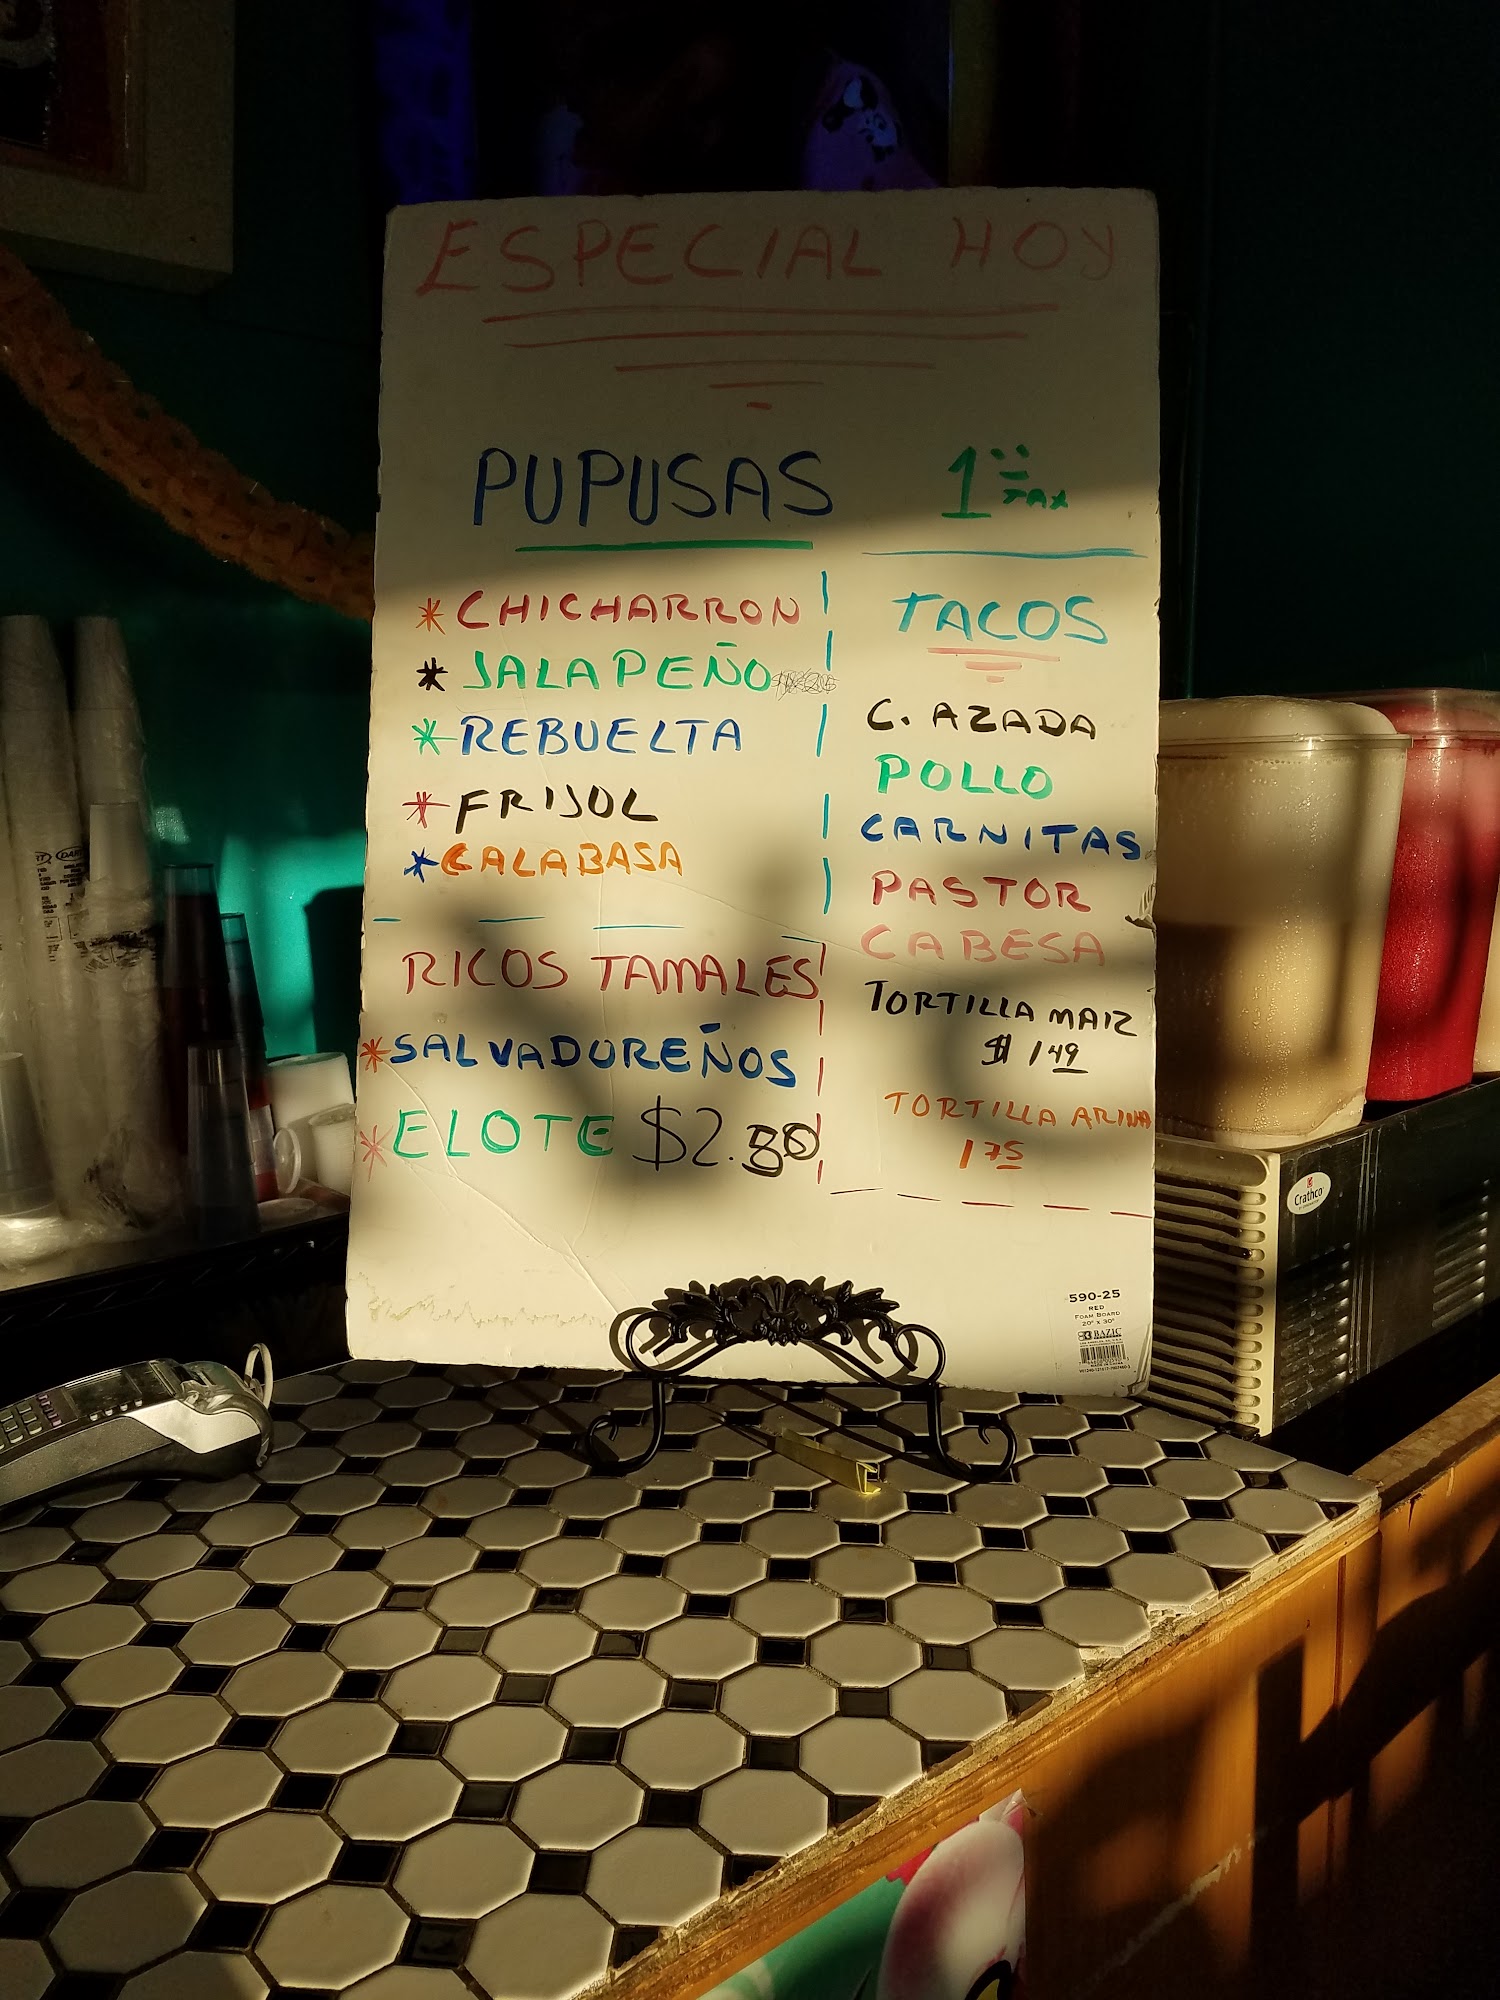 ESPECIAL HOY
PUPUSAS
1
TAX
* CHICHARRON
* JALAPEÑO
* REBUELTA
* FRIJOL
* CALABASA
RICOS TAMALES
* SALVADOREÑOS
* ELOTE $2.50
TACOS
C. AZADA
POLLO
CARNITAS
PASTOR
CABESA
TORTILLA MAIZ
$1 49
TORTILLA ARINA
1 75
590-25
RED
FOAM BOARD
20" X 30"
BAZIC
Crathco
DART